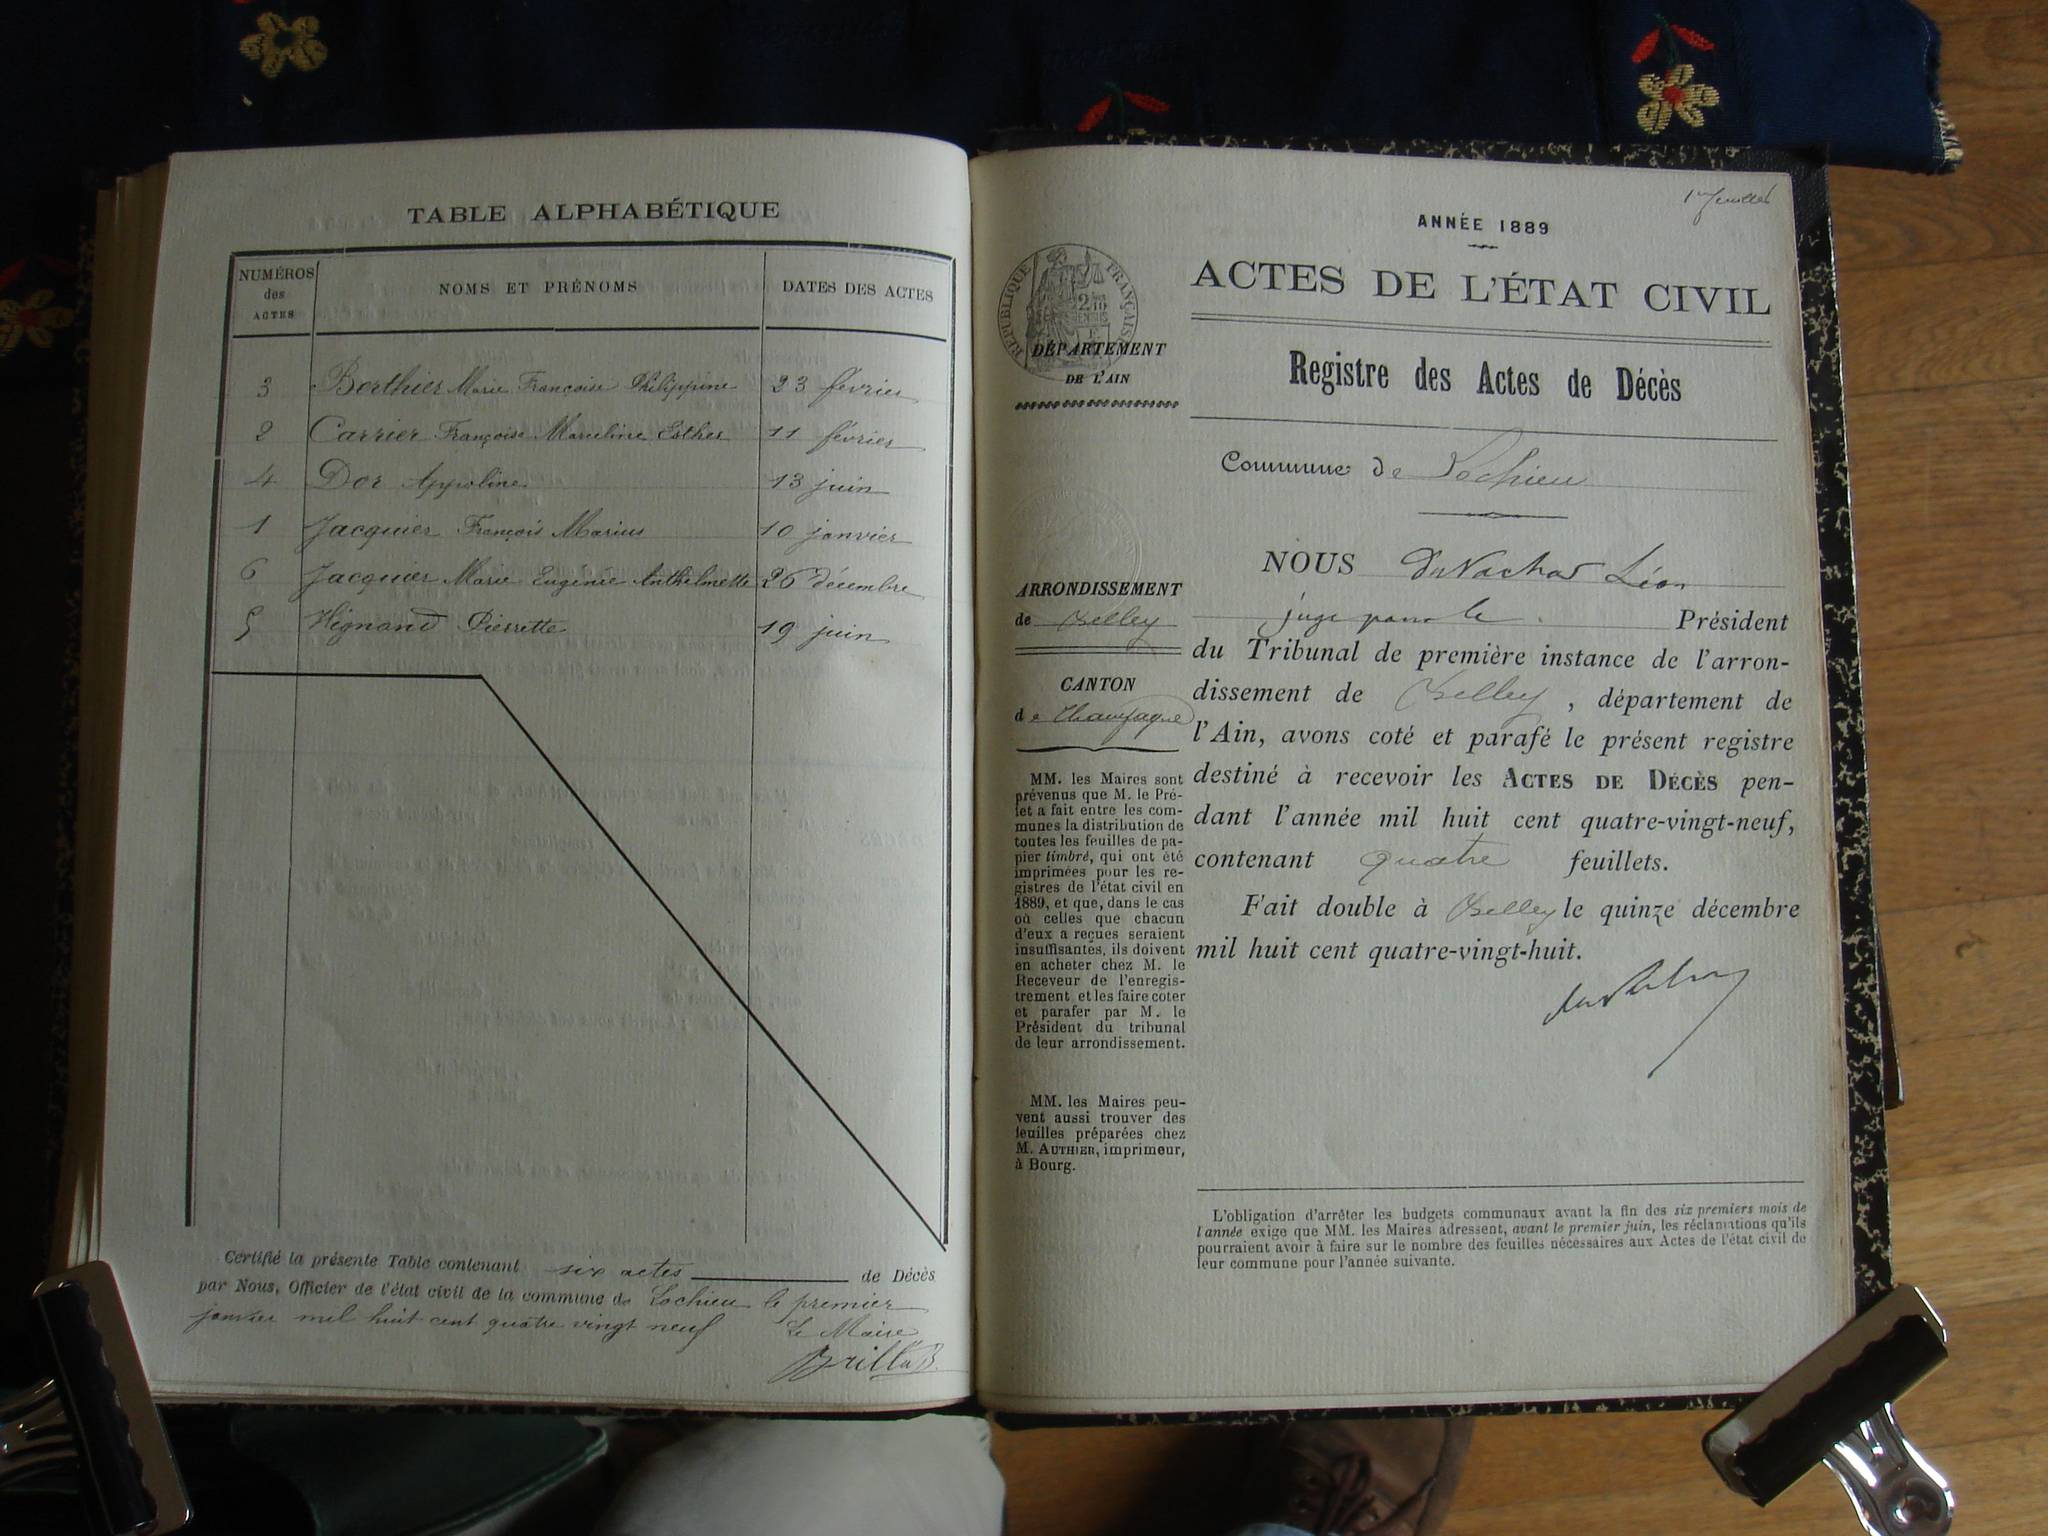 TABLE ALPHABÉTIQUE
NUMÉROS des ACTES
NOMS ET PRÉNOMS
DATES DES ACTES
3 Berthier Marie Françoise Philippine 23 février
2 Carrier Françoise Marceline Esther 11 février
4 Dor Appoline 13 juin
1 Jacquier François Marius 10 janvier
6 Jacquier Marie Eugénie Anthelmette 26 décembre
5 Vignand Pierrette 19 juin
Certifié la présente Table contenant six actes de Décès
par Nous, Officier de l'état civil de la commune de Lochieu le premier
janvier mil huit cent quatre vingt neuf
Le Maire
Brillat B.
1er feuillet
ANNÉE 1889
ACTES DE L'ÉTAT CIVIL
RÉPUBLIQUE FRANÇAISE
DÉPARTEMENT
DE L'AIN
Registre des Actes de Décès
Commune de Lochieu
NOUS Léon
juge Président
du Tribunal de première instance de l'arron-
dissement de Belley, département de
l'Ain, avons coté et parafé le présent registre
destiné à recevoir les ACTES DE DÉCÈS pen-
dant l'année mil huit cent quatre-vingt-neuf,
contenant quatre feuillets.
Fait double à Belley le quinze décembre
mil huit cent quatre-vingt-huit.
ARRONDISSEMENT
de Belley
CANTON
de Champagne
MM. les Maires sont
prévenus que M. le Pré-
fet a fait entre les com-
munes la distribution de
toutes les feuilles de pa-
pier timbré, qui ont été
imprimées pour les re-
gistres de l'état civil en
1889, et que, dans le cas
où celles que chacun
d'eux a reçues seraient
insuffisantes, ils doivent
en acheter chez M. le
Receveur de l'enregis-
trement et les faire coter
et parafer par M. le
Président du tribunal
de leur arrondissement.
MM. les Maires peu-
vent aussi trouver des
feuilles préparées chez
M. AUTHIER, imprimeur,
à Bourg.
L'obligation d'arrêter les budgets communaux avant la fin des six premiers mois de
l'année exige que MM. les Maires adressent, avant le premier juin, les réclamations qu'ils
pourraient avoir à faire sur le nombre des feuilles nécessaires aux Actes de l'état civil de
leur commune pour l'année suivante.